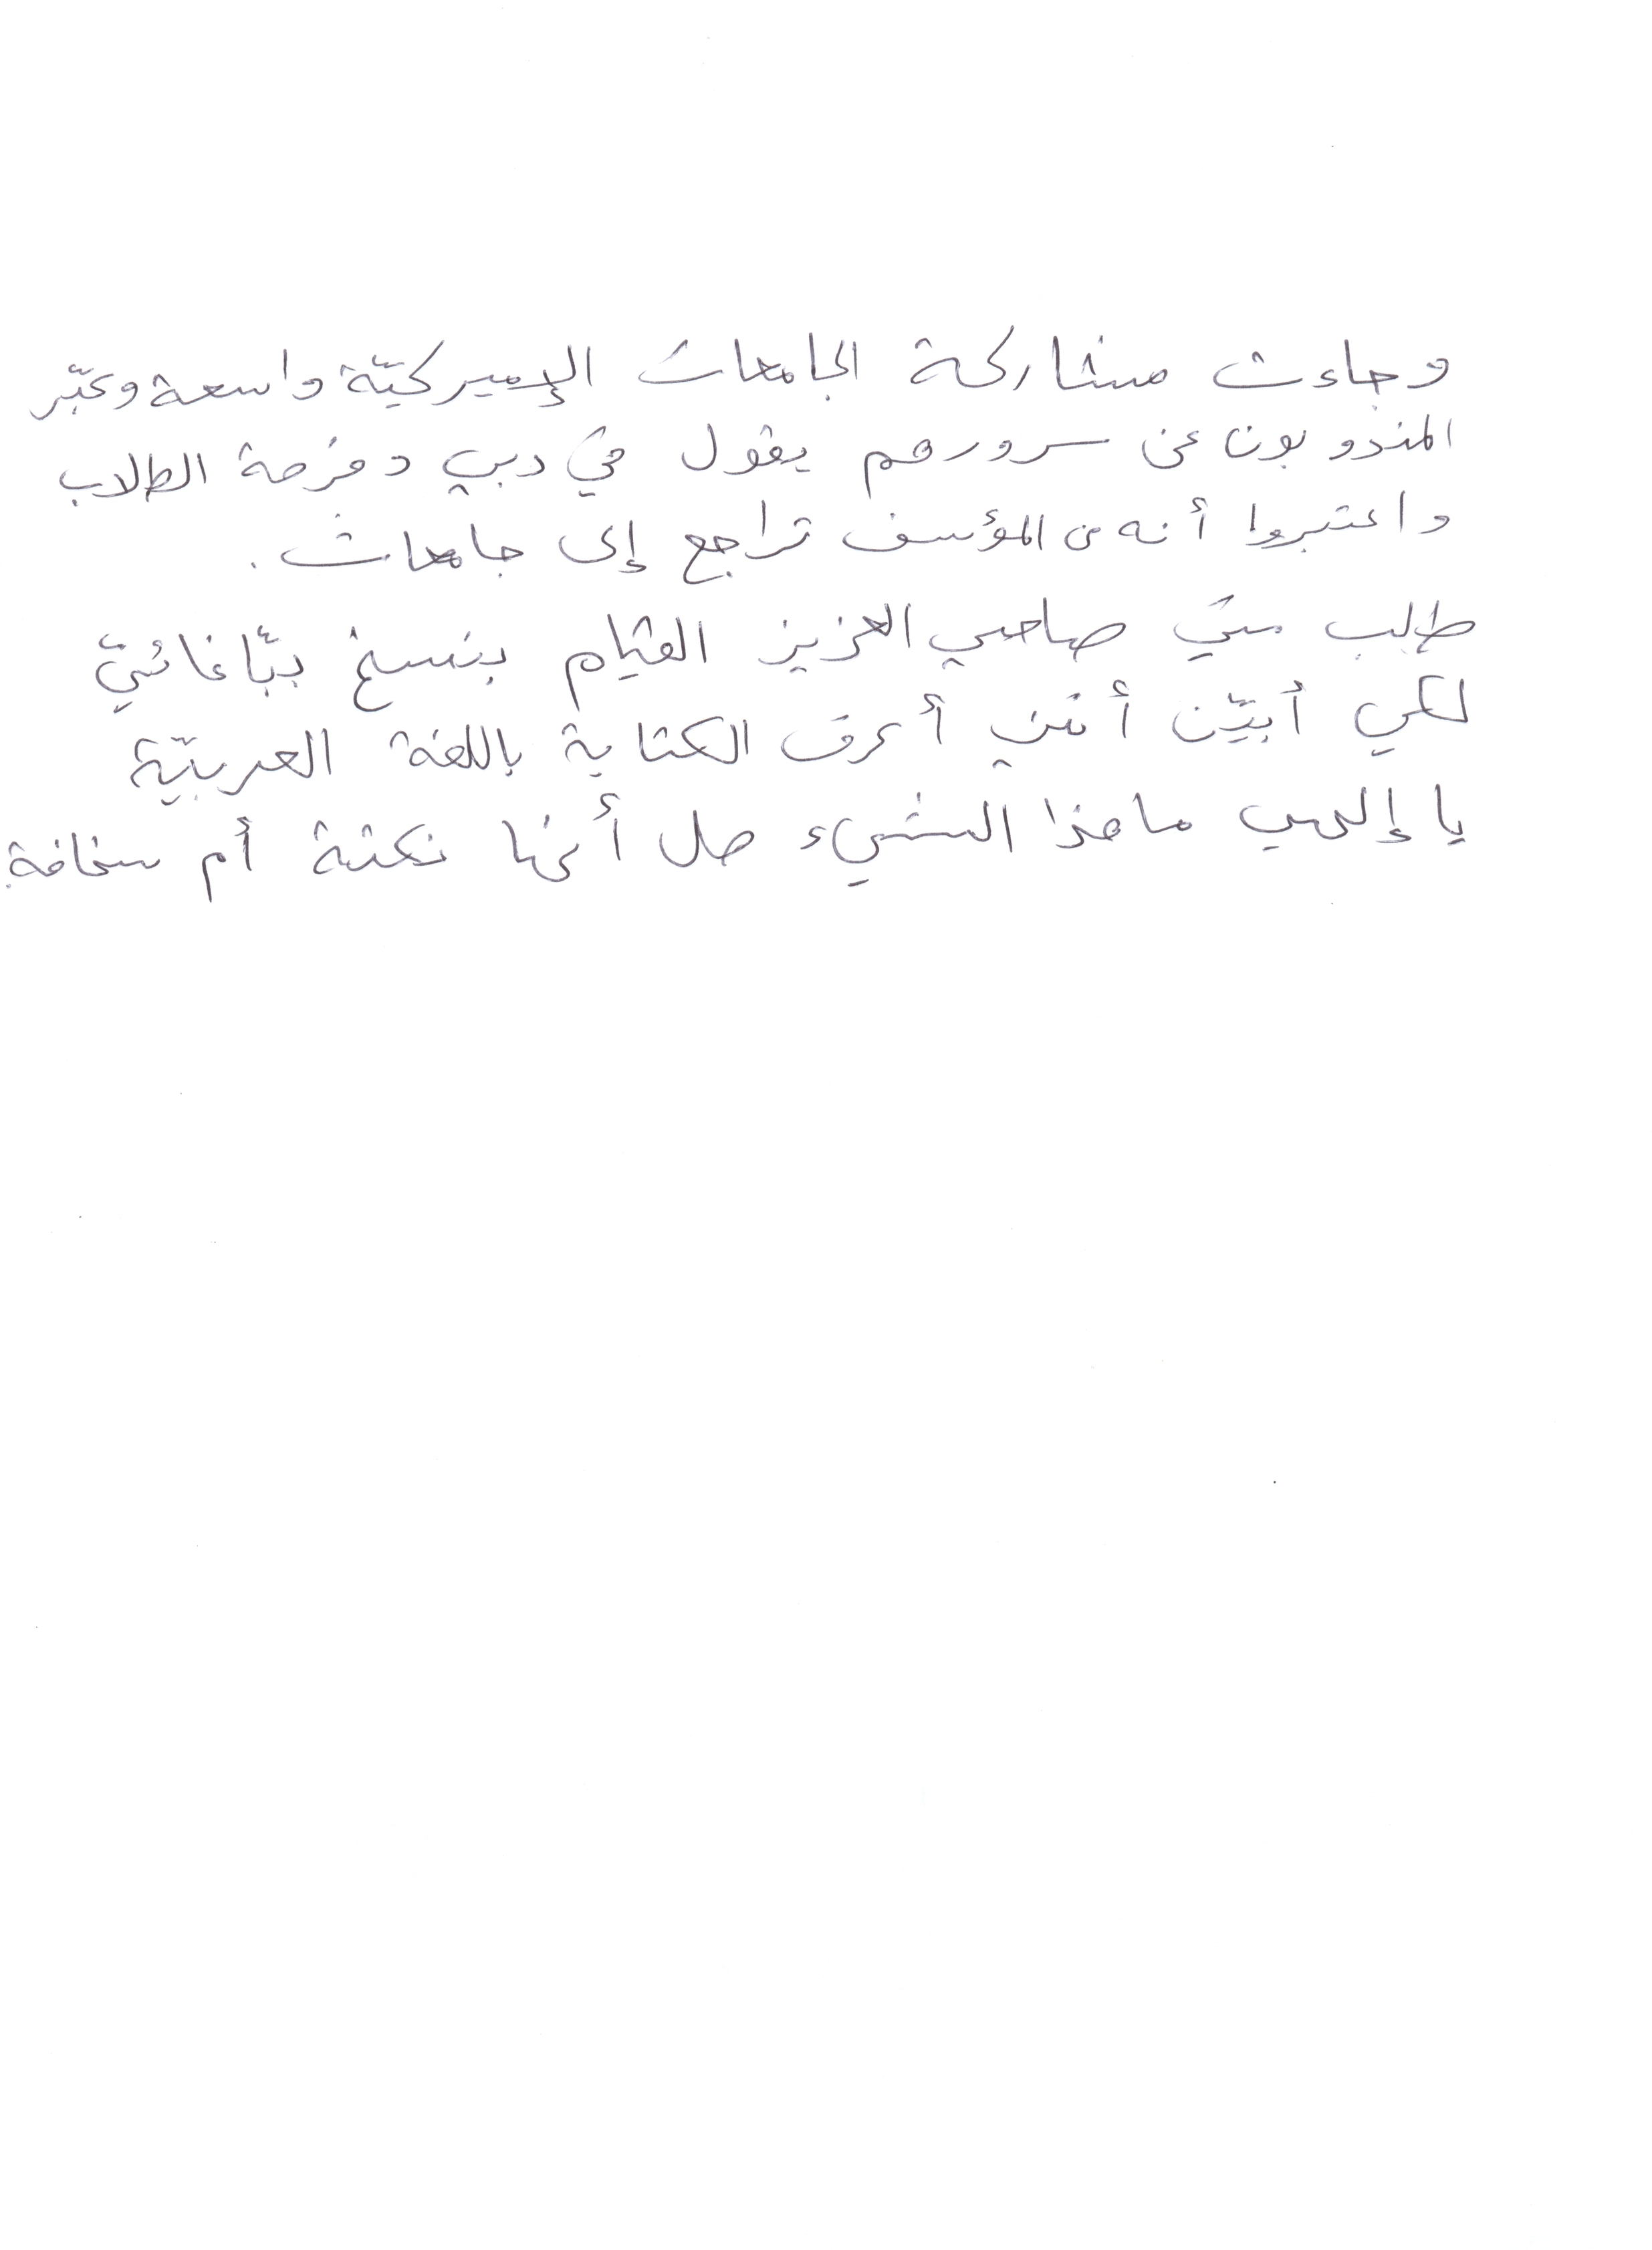 وجاءت مشاركة الجامعات الإميركيّة واسعة وعبّر
المندوبون عن سرورهم يقول في دبي وفرصة الطلاب
واعتبروا أنه من المؤسف تراجع إلى جامعات.
طلب منّي صاحبي العزيز القيام بنسخ ببّاغائيّ
لكي أبيّن أنني أعرف الكتابة باللغة العربيّة
يا إلهي ما هذا الشيء هل أنها نكتة أم سخافة